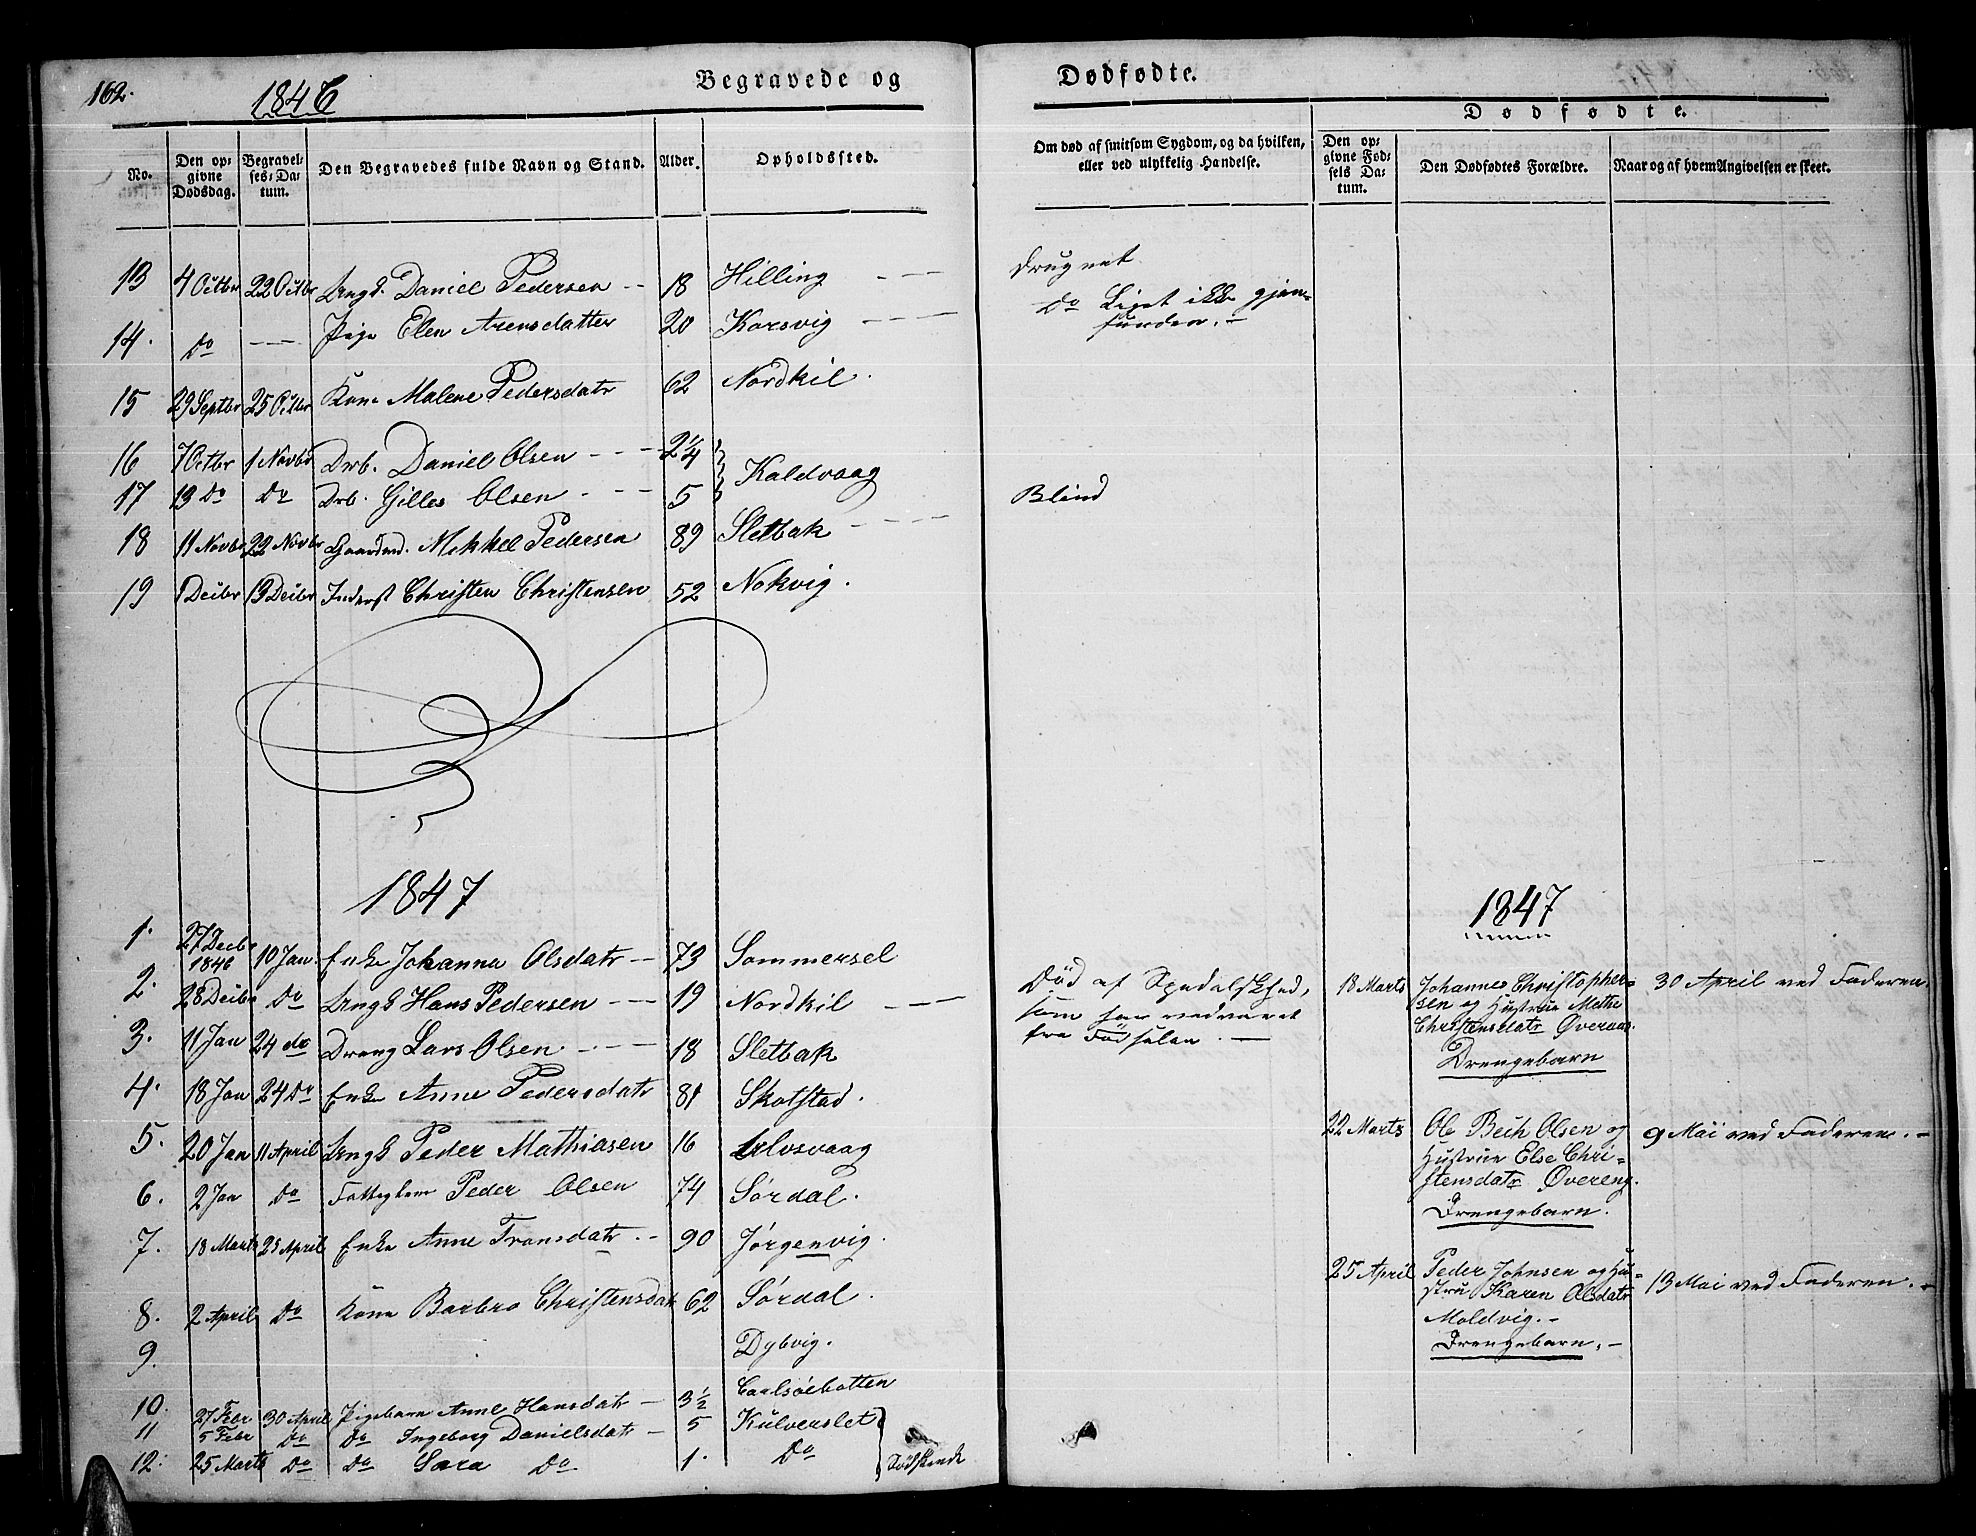 162.
1846
Begravede og
No.
Den opgivne Dødsdag.
Begravelses-Datum.
Den Begravedes fulde Navn og Stand.
Alder.
Opholdssted.
13 4 Octbr 22 Octbr Ungk. Daniel Pedersen 18 Hilling
14. Do Pige Elen Arensdatter 20 Korsvig
15 29 Septbr 25 Octbr Kone Malene Pedersdatr 62 Nordkil.
16 7 Octbr 1 Novbr Drb. Daniel Olsen 2 1/4 Kaldvaag
17 13 Do Do Drb. Gilles Olsen 5
18 11 Novbr 22 Novbr Gaardmd. Mikkel Pedersen 89 Sletbak
19 1 Decbr 13 Decbr Inderst Christen Christensen 52 Nokvig.
1847
1. 27 Decbr 1846 10 Jan. Enke Johanna Olsdatr 73 Sommersel
2. 28 Decbr Do Ungk Hans Pedersen 19 Nordkil
3. 11 Jan 24 do Dreng Lars Olsen 18 Sletbak
4. 18 Jan 24 Do Enke Anne Pedersdatr 81 Skotstad.
5. 20 Jan 11 April Ungk Peder Mathiasen 16 Ulvsvaag
6. 2 Jan Do Fattiglem Peder Olsen 74 Sørdal.
7. 18 Marts 25 April Enke Anne Transdatr. 90 Jørgenvig.
8. 2 April Do Kone Barbro Christensdatr 62 Sørdal.
9. Dybvig.
10. 27 Febr 30 April Pigebarn Anne Hansdatr 3 1/2 Carlsöebotten
11 5 Febr Do Do Ingeborg Danielsdatr 5 Kulverslet
12. 25 Marts Do Do Sara Do 1. Do Sødskende
Dødfødte.
Om død af smitsom Sygdom, og da hvilken, eller ved ulykkelig Handelse.
Dødfødte.
Den opgivne Fødsels Datum.
Den Dødfødtes Forældre.
Naar og af hvem Angivelsen er skeet.
Drugnet.
Do Liget ikke gjen-
funden.
Blind
1847
Død af Spedalskhed,
som har vedvaret
fra Fødselen.
18 Marts Johannes Christopher- 30 April ved Faderen.
sen og Hustrue Methe
Christensdatr Øveraas.
Drengebarn
22 Marts Ole Bech Olsen og 9 Mai ved Faderen.
Hustrue Else Chri-
stensdatr Övereng.
Drengebarn.
25 April Peder Johnsen og Hu- 13 Mai ved Faderen.
stru Karen Olsdatr
Moldvig.
Drengebarn.